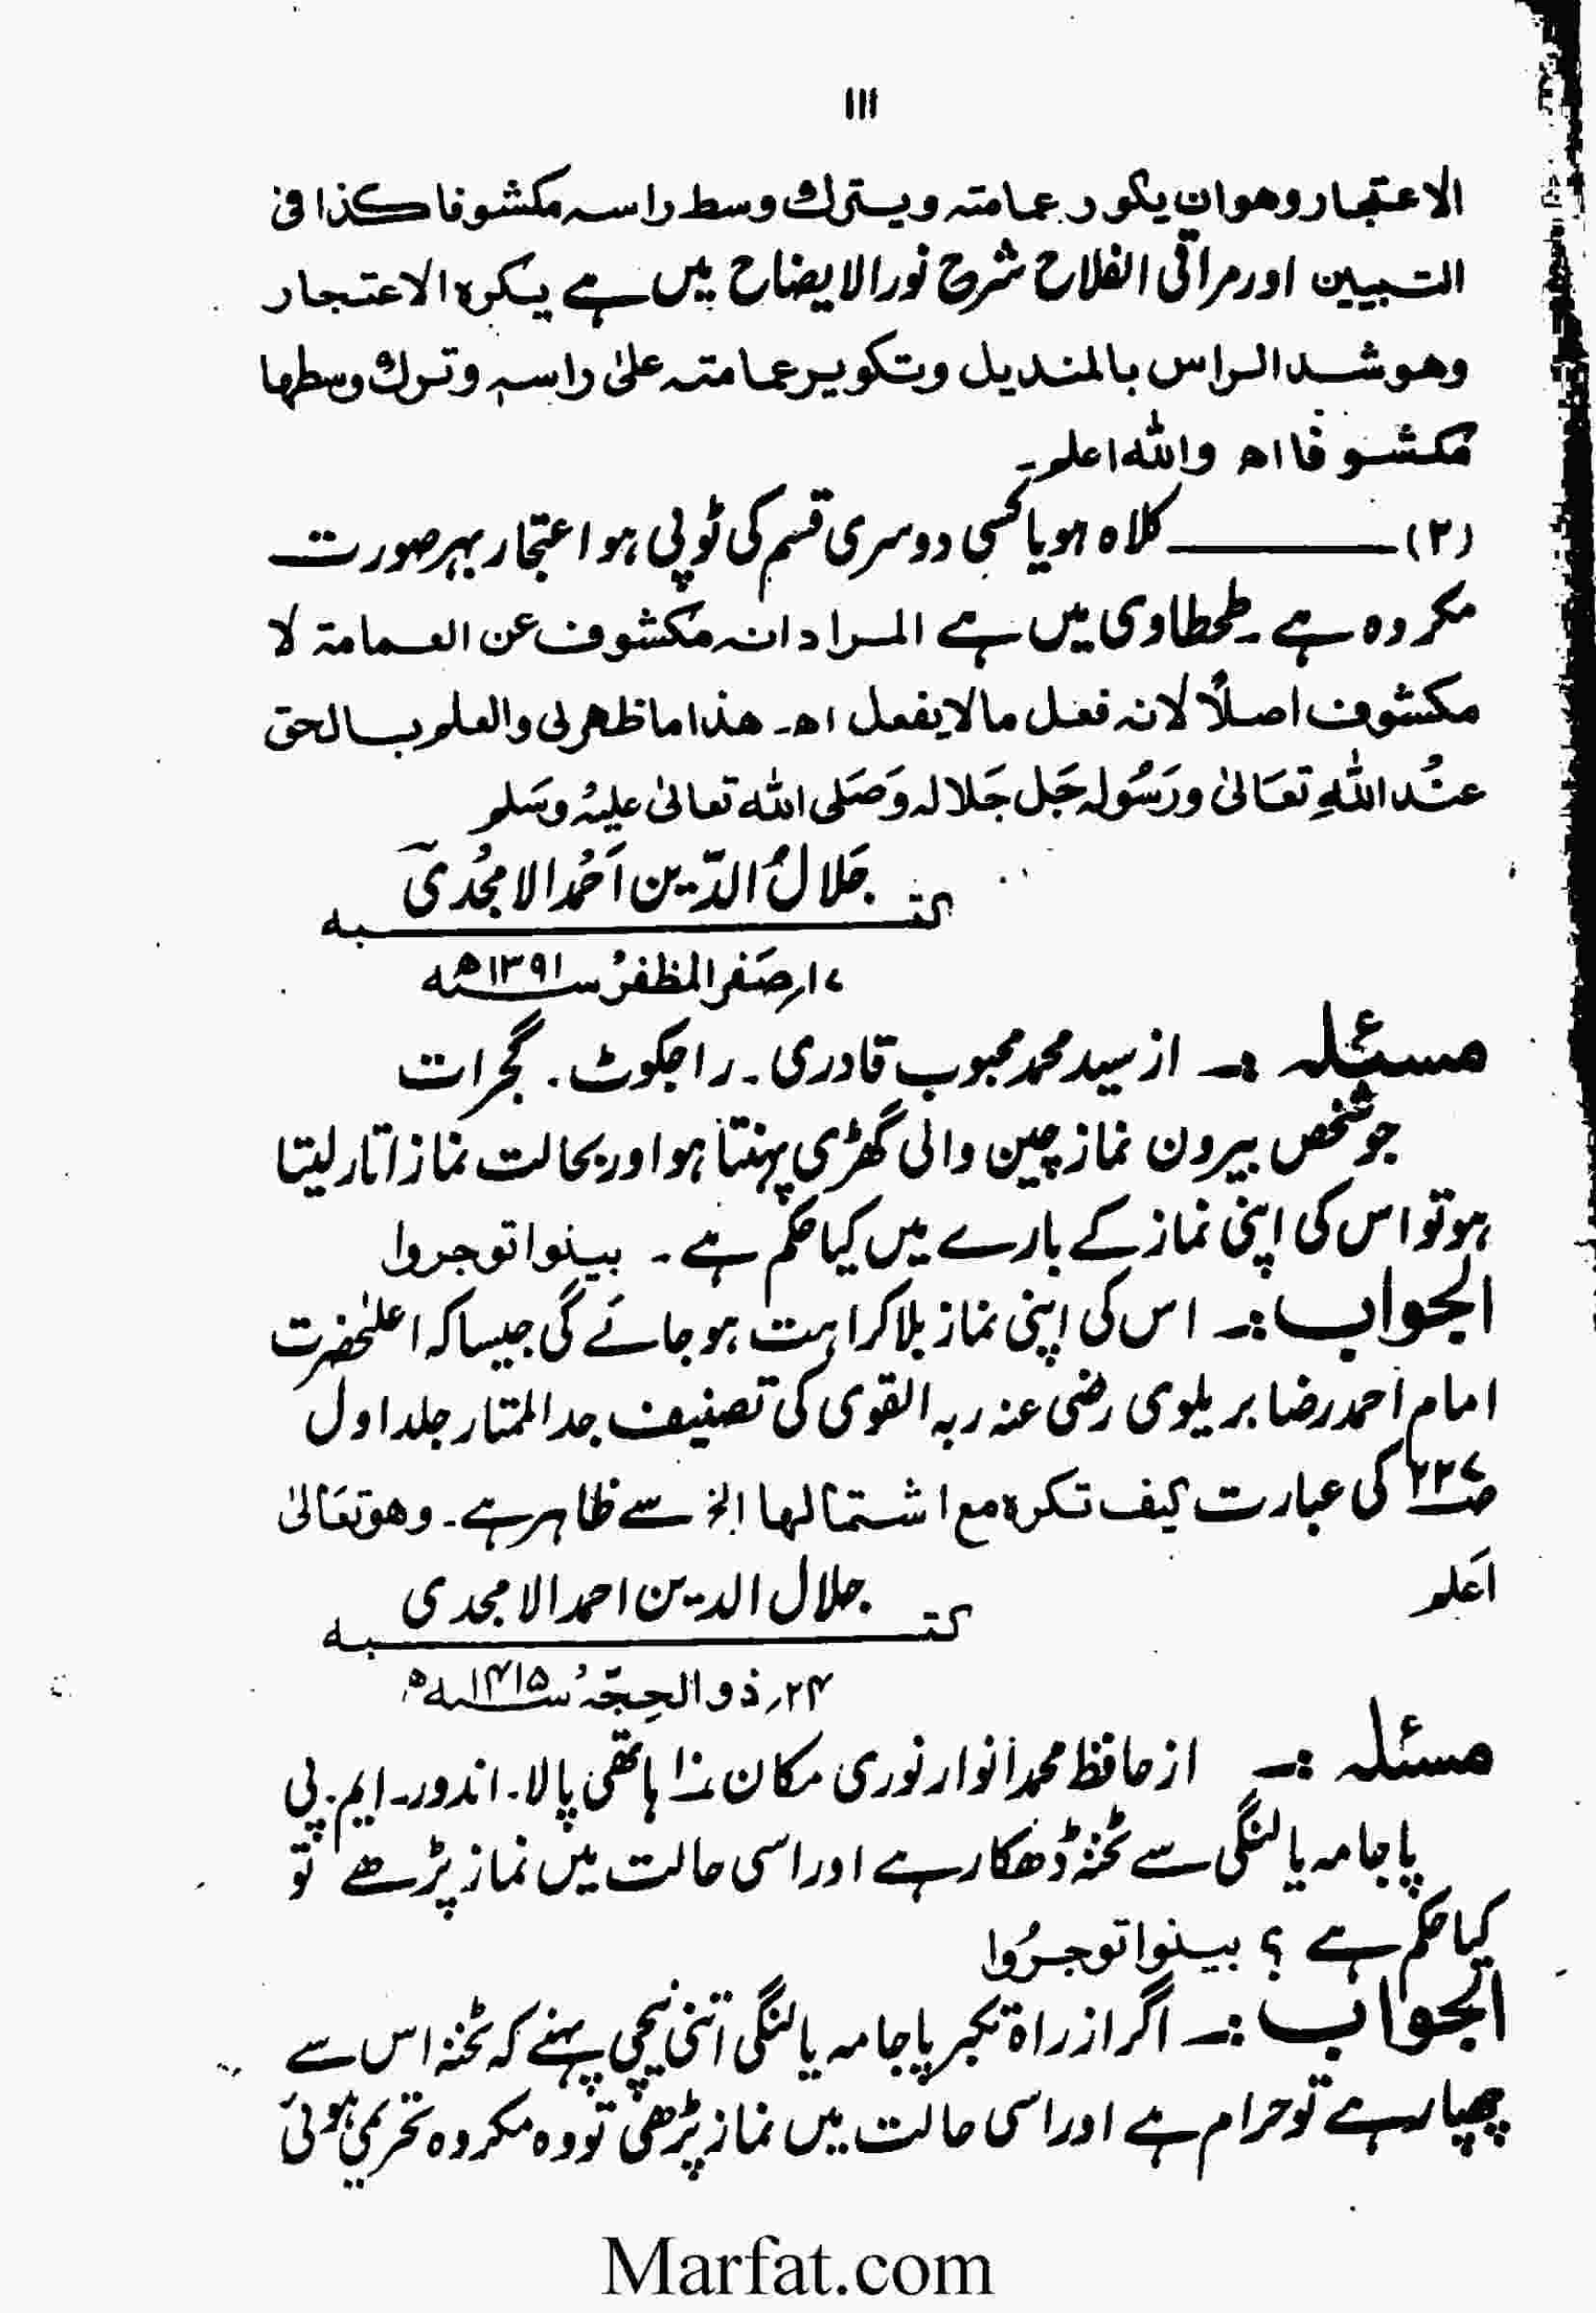 ١١١
الاعتجار وهو ان يكور عمامته ويترك وسط راسه مكشوفا كذا فى
التبيين اور مراقی الفلاح شرح نورالایضاح میں ہے یکرہ الاعتجار
وهو شد الراس بالمنديل وتكوير عمامته على راسه وترك وسطها
مكشوفا اھ واللہ اعلم۔
(۲) ــــــ کلاہ ہو یا کسی دوسری قسم کی ٹوپی ہو اعتجار بہر صورت
مکروہ ہے۔ طحطاوی میں ہے المراد انه مكشوف عن العمامة لا
مكشوف اصلًا لانه فعل مالا يفعل اھ۔ هذا ما ظهر لى والعلم بالحق
عنْد اللهِ تعَالىٰ ورَسُوله جَل جَلاله وَصَلى الله تعالىٰ عليْه وسَلم
جَلالُ الدّین اَحْمد الامجُدی
کتــــــبه
۱۷؍ صَفر المظفرُ سنہ ۱۳۹۱ھ
مسئلہ :۔ از سید محمد محبوب قادری۔ راجکوٹ۔ گجرات
جو شخص بیرون نماز چین والی گھڑی پہنتا ہو اور بحالت نماز اتار لیتا
ہو تو اس کی اپنی نماز کے بارے میں کیا حکم ہے۔ بینوا توجروا
الجواب :۔ اس کی اپنی نماز بلا کراہت ہو جائے گی جیسا کہ اعلٰحضرت
امام احمد رضا بریلوی رضی عنہ ربہ القوی کی تصنیف جد الممتار جلد اول
صـ۲۳۷ کی عبارت کیف تکرہ مع اشتمالها الخ سے ظاہر ہے۔ وهو تعَالیٰ
اعَلم
جلال الدین احمد الامجدی
کتــــــبه
۲۴؍ ذوالحِجّہُ سنہ ۱۴۱۵ھ
مسئلہ :۔ از حافظ محمد انوار نوری مکان نمذا ہاتھی پالا۔ اندور۔ ایم۔ پی
پاجامہ یا لنگی سے ٹخنہ ڈھکا رہے اور اسی حالت میں نماز پڑھے تو
کیا حکم ہے ؟ بینوا توجرُوا
الجواب :۔ اگر از راہ تکبر پاجامہ یا لنگی اتنی نیچی پہنے کہ ٹخنہ اس سے
چھپا رہے تو حرام ہے اور اسی حالت میں نماز پڑھی تو وہ مکروہ تحریمی ہوئی
Marfat.com